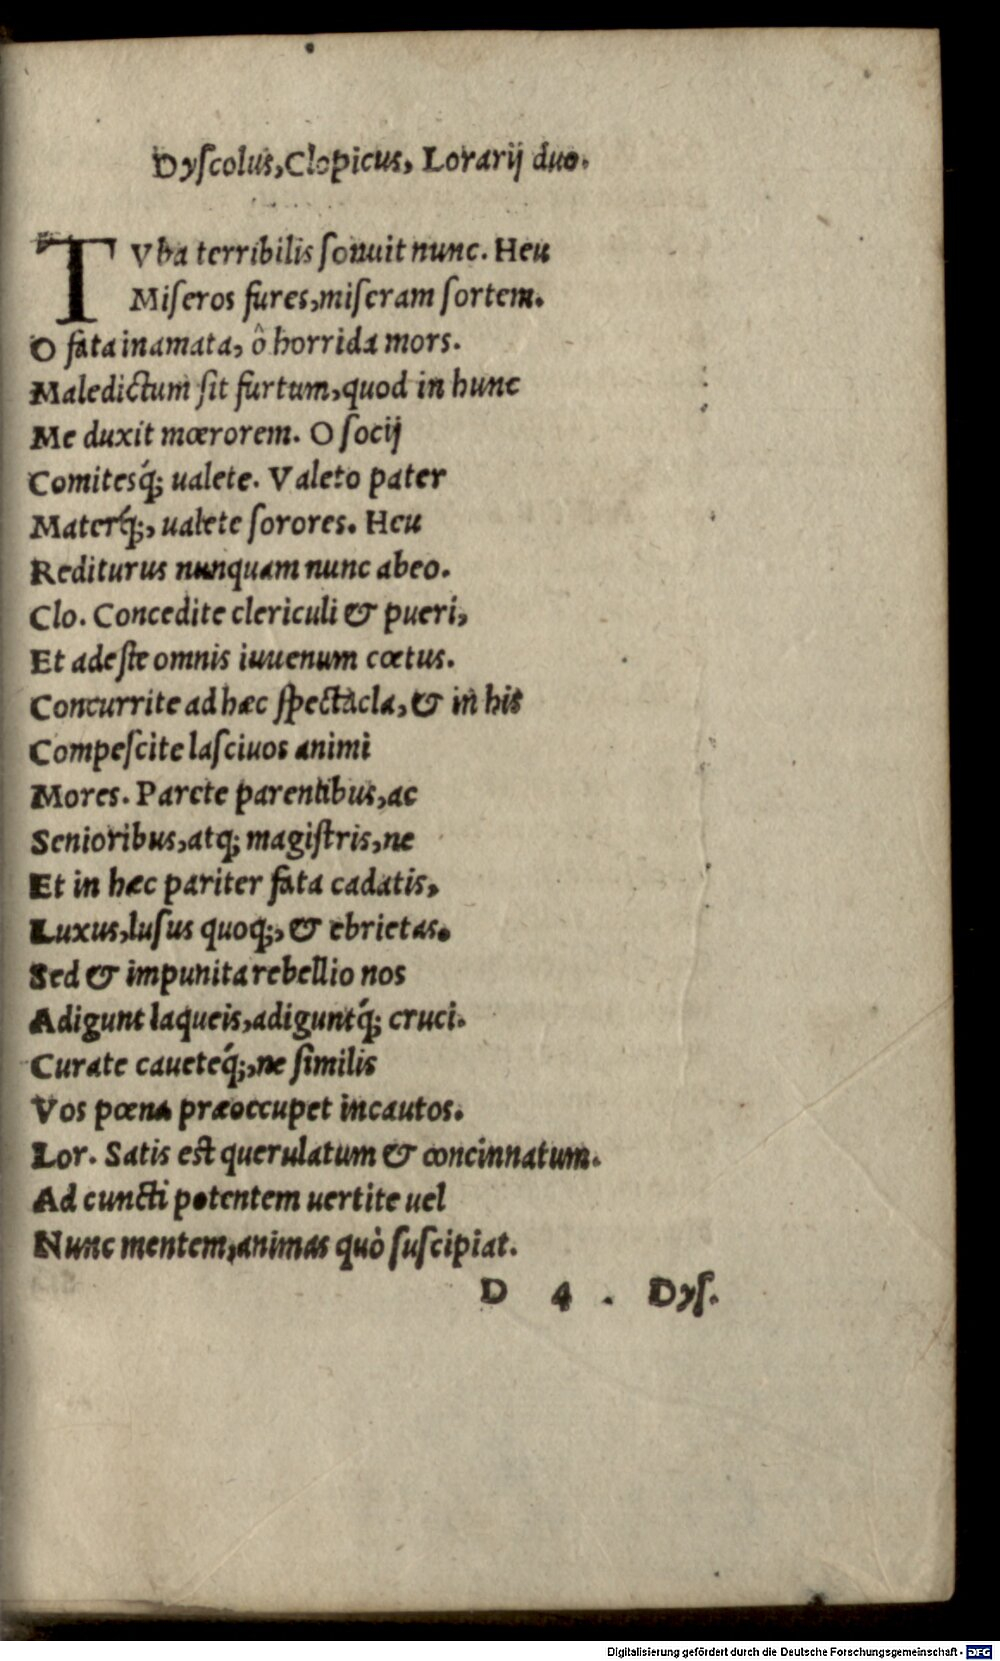 Dyſcolus, Clopicus, Lorarij duo.
TVba terribilis ſonuit nunc. Heu
Miſeros fures, miſeram ſortem.
O fata inamata, ô horrida mors.
Maledictum ſit furtum, quod in hunc
Me duxit mœrorem. O ſocij
Comitesq́; ualete. Valeto pater
Materq́;, ualete ſorores. Heu
Rediturus nunquam nunc abeo.
Clo. Concedite clericuli & pueri,
Et adeſte omnis iuuenum cœtus.
Concurrite ad hæc ſpectacla, & in his
Compeſcite laſciuos animi
Mores. Parete parentibus, ac
Senioribus, atq; magiſtris, ne
Et in hæc pariter fata cadatis,
Luxus, luſus quoq;, & ebrietas.
Sed & impunita rebellio nos
Adigunt laqueis, adiguntq́; cruci.
Curate caueteq́;, ne ſimilis
Vos pœna præoccupet incautos.
Lor. Satis eſt querulatum & concinnatum.
Ad cuncti potentem uertite uel
Nunc mentem, animas quò ſuſcipiat.
D 4 . Dyſ.
Digitalisierung gefördert durch die Deutsche Forschungsgemeinschaft - DFG